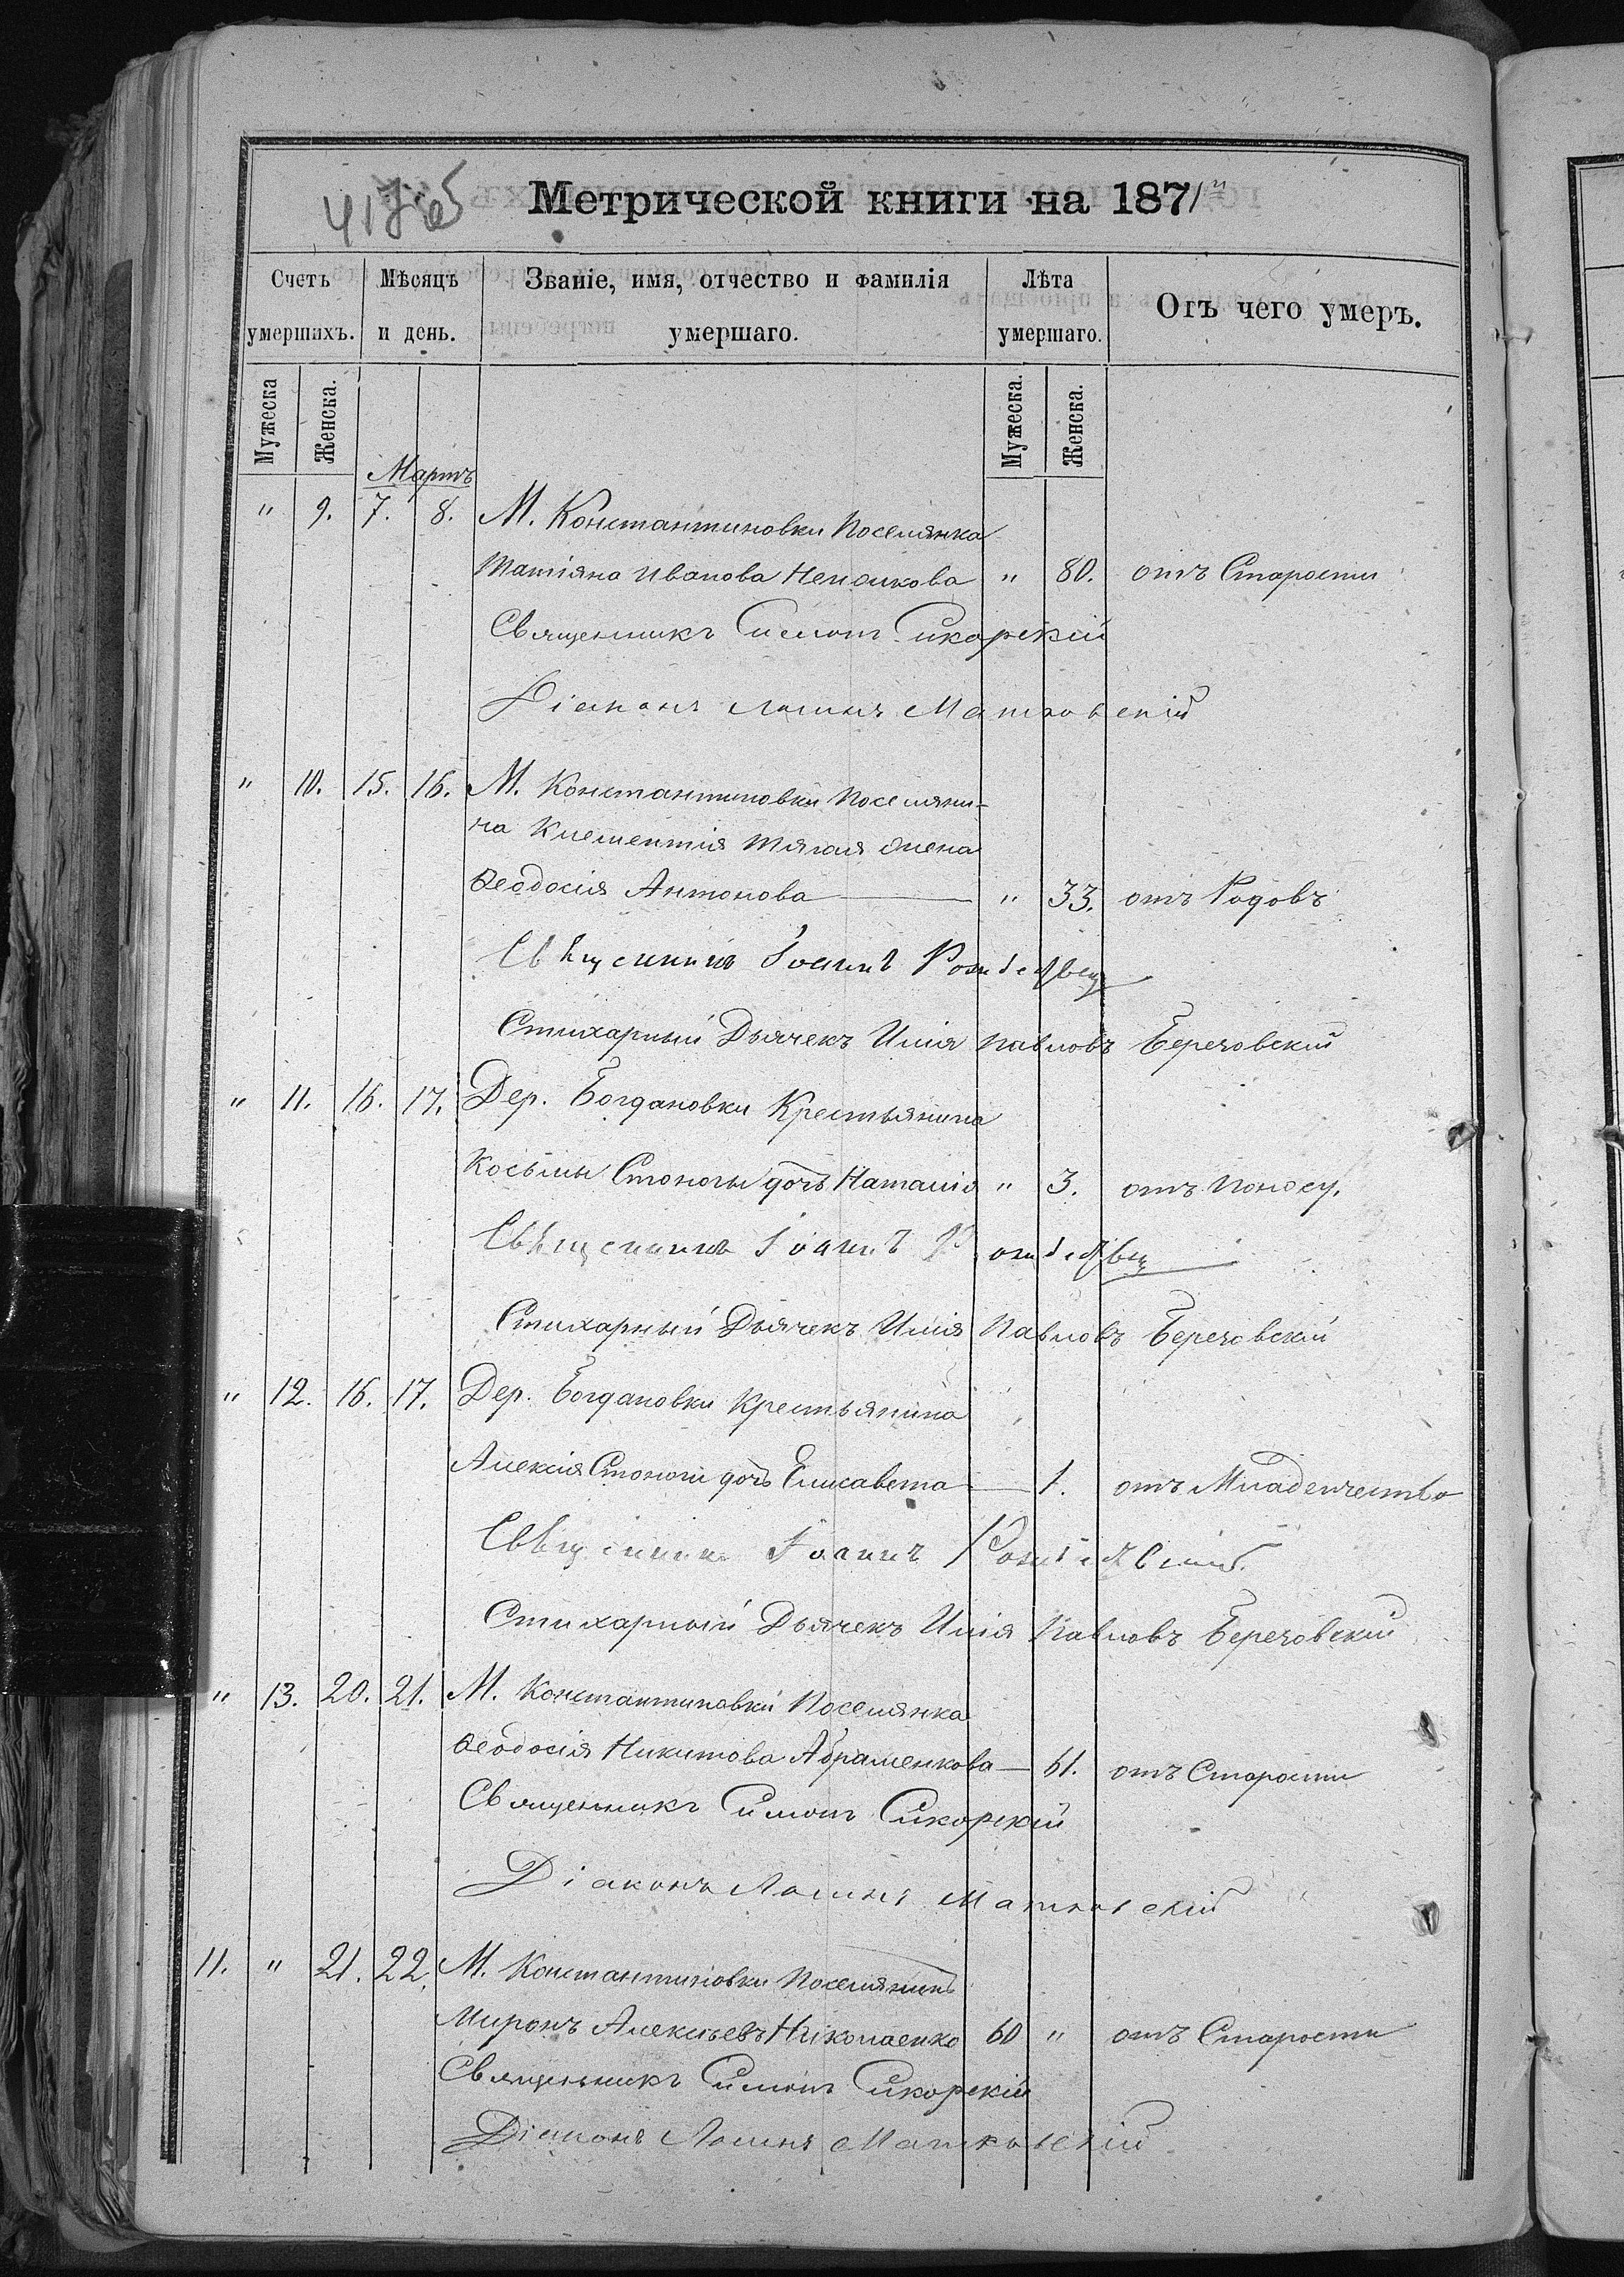 Метрической книги на 1871
Счетъ умершихъ. Мѣсяцъ и день. Званіе, имя, отчество и фамилія умершаго. Лѣта умершаго. Отъ чего умеръ.
Мужеска Женска. Мужеска. Женска.
Мартъ
" 9. 7. 8. М. Константиновки Поселянка
Татіяна Иванова " 80. отъ Старости
Священникъ Симонъ Сикорскій
Діаконъ Матковскій
" 10. 15. 16. М. Константиновки Поселяни-
на Климентія Тягая жена
Ѳеодосія Антонова " 33. отъ Родовъ
Свѣщенникъ Іоаннъ
Стихарный Дьячекъ Илія Павловъ Березовскій
" 11. 16. 17. Дер. Богдановки Крестьянина
Косьмы Стоноги дочь Наталія " 3. отъ Поносу.
Свѣщенникъ Іоаннъ
Стихарный Дьячекъ Илія Павловъ Березовскій
" 12. 16. 17. Дер. Богдановки Крестьянина
Алексія Стоноги дочь Елисавета — 1. отъ Младенчества
Свѣщенникъ Іоаннъ
Стихарный Дьячекъ Илія Павловъ Березовскій
" 13. 20. 21. М. Константиновки Поселянка
Ѳеодосія Никитова Абраменкова — 61. отъ Старости
Священникъ Симонъ Сикорскій
Діаконъ Матковскій
11. " 21. 22. М. Константиновки Поселянинъ
Миронъ Алексѣевъ Ніколаенко 60 " отъ Старости
Священникъ Симонъ Сикорскій
Діаконъ Матковскій